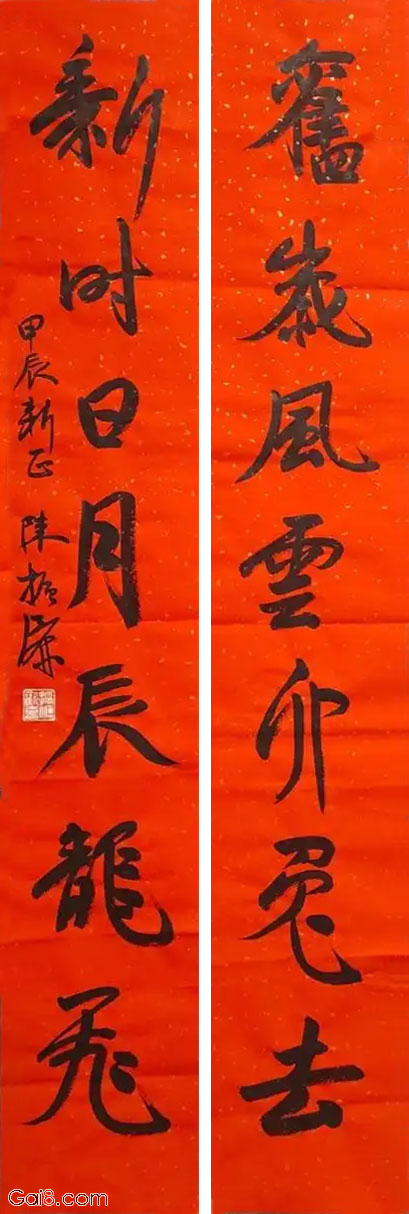 舊歲風雲卯兔去
新时日月辰龍飛
甲辰新正 陈振濂
Gai8.com